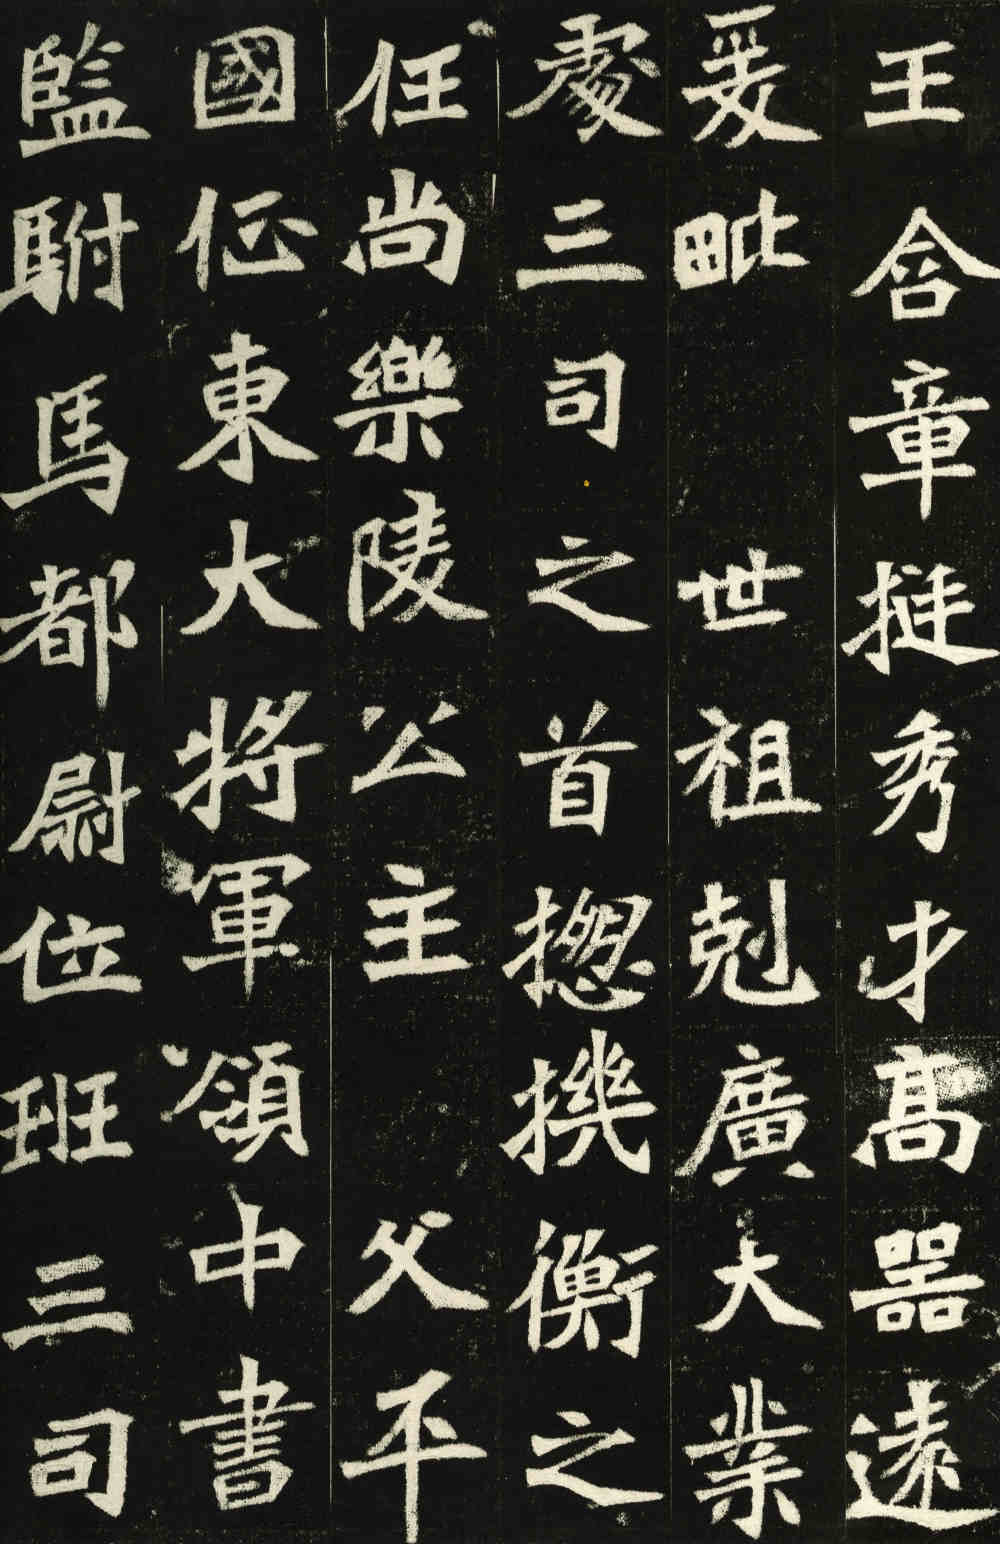 王含章挻秀才高器遠
爰毗世祖剋廣大業
處三司之首揔機衡之
任尚樂陵公主父平
國征東大將軍領中書
監駙馬都尉位班三司